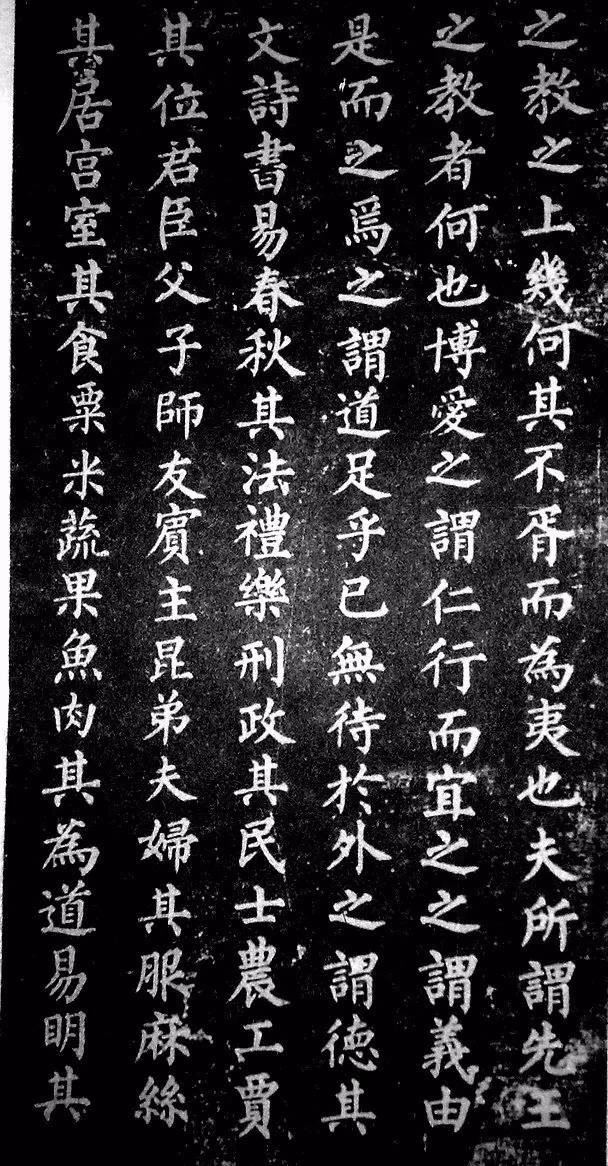 之教之上幾何其不胥而為夷也夫所謂先王
之教者何也博愛之謂仁行而宜之之謂義由
是而之焉之謂道足乎已無待於外之謂德其
文詩書易春秋其法禮樂刑政其民士農工賈
其位君臣父子師友賓主昆弟夫婦其服麻絲
其居宮室其食粟米蔬果魚肉其為道易明其